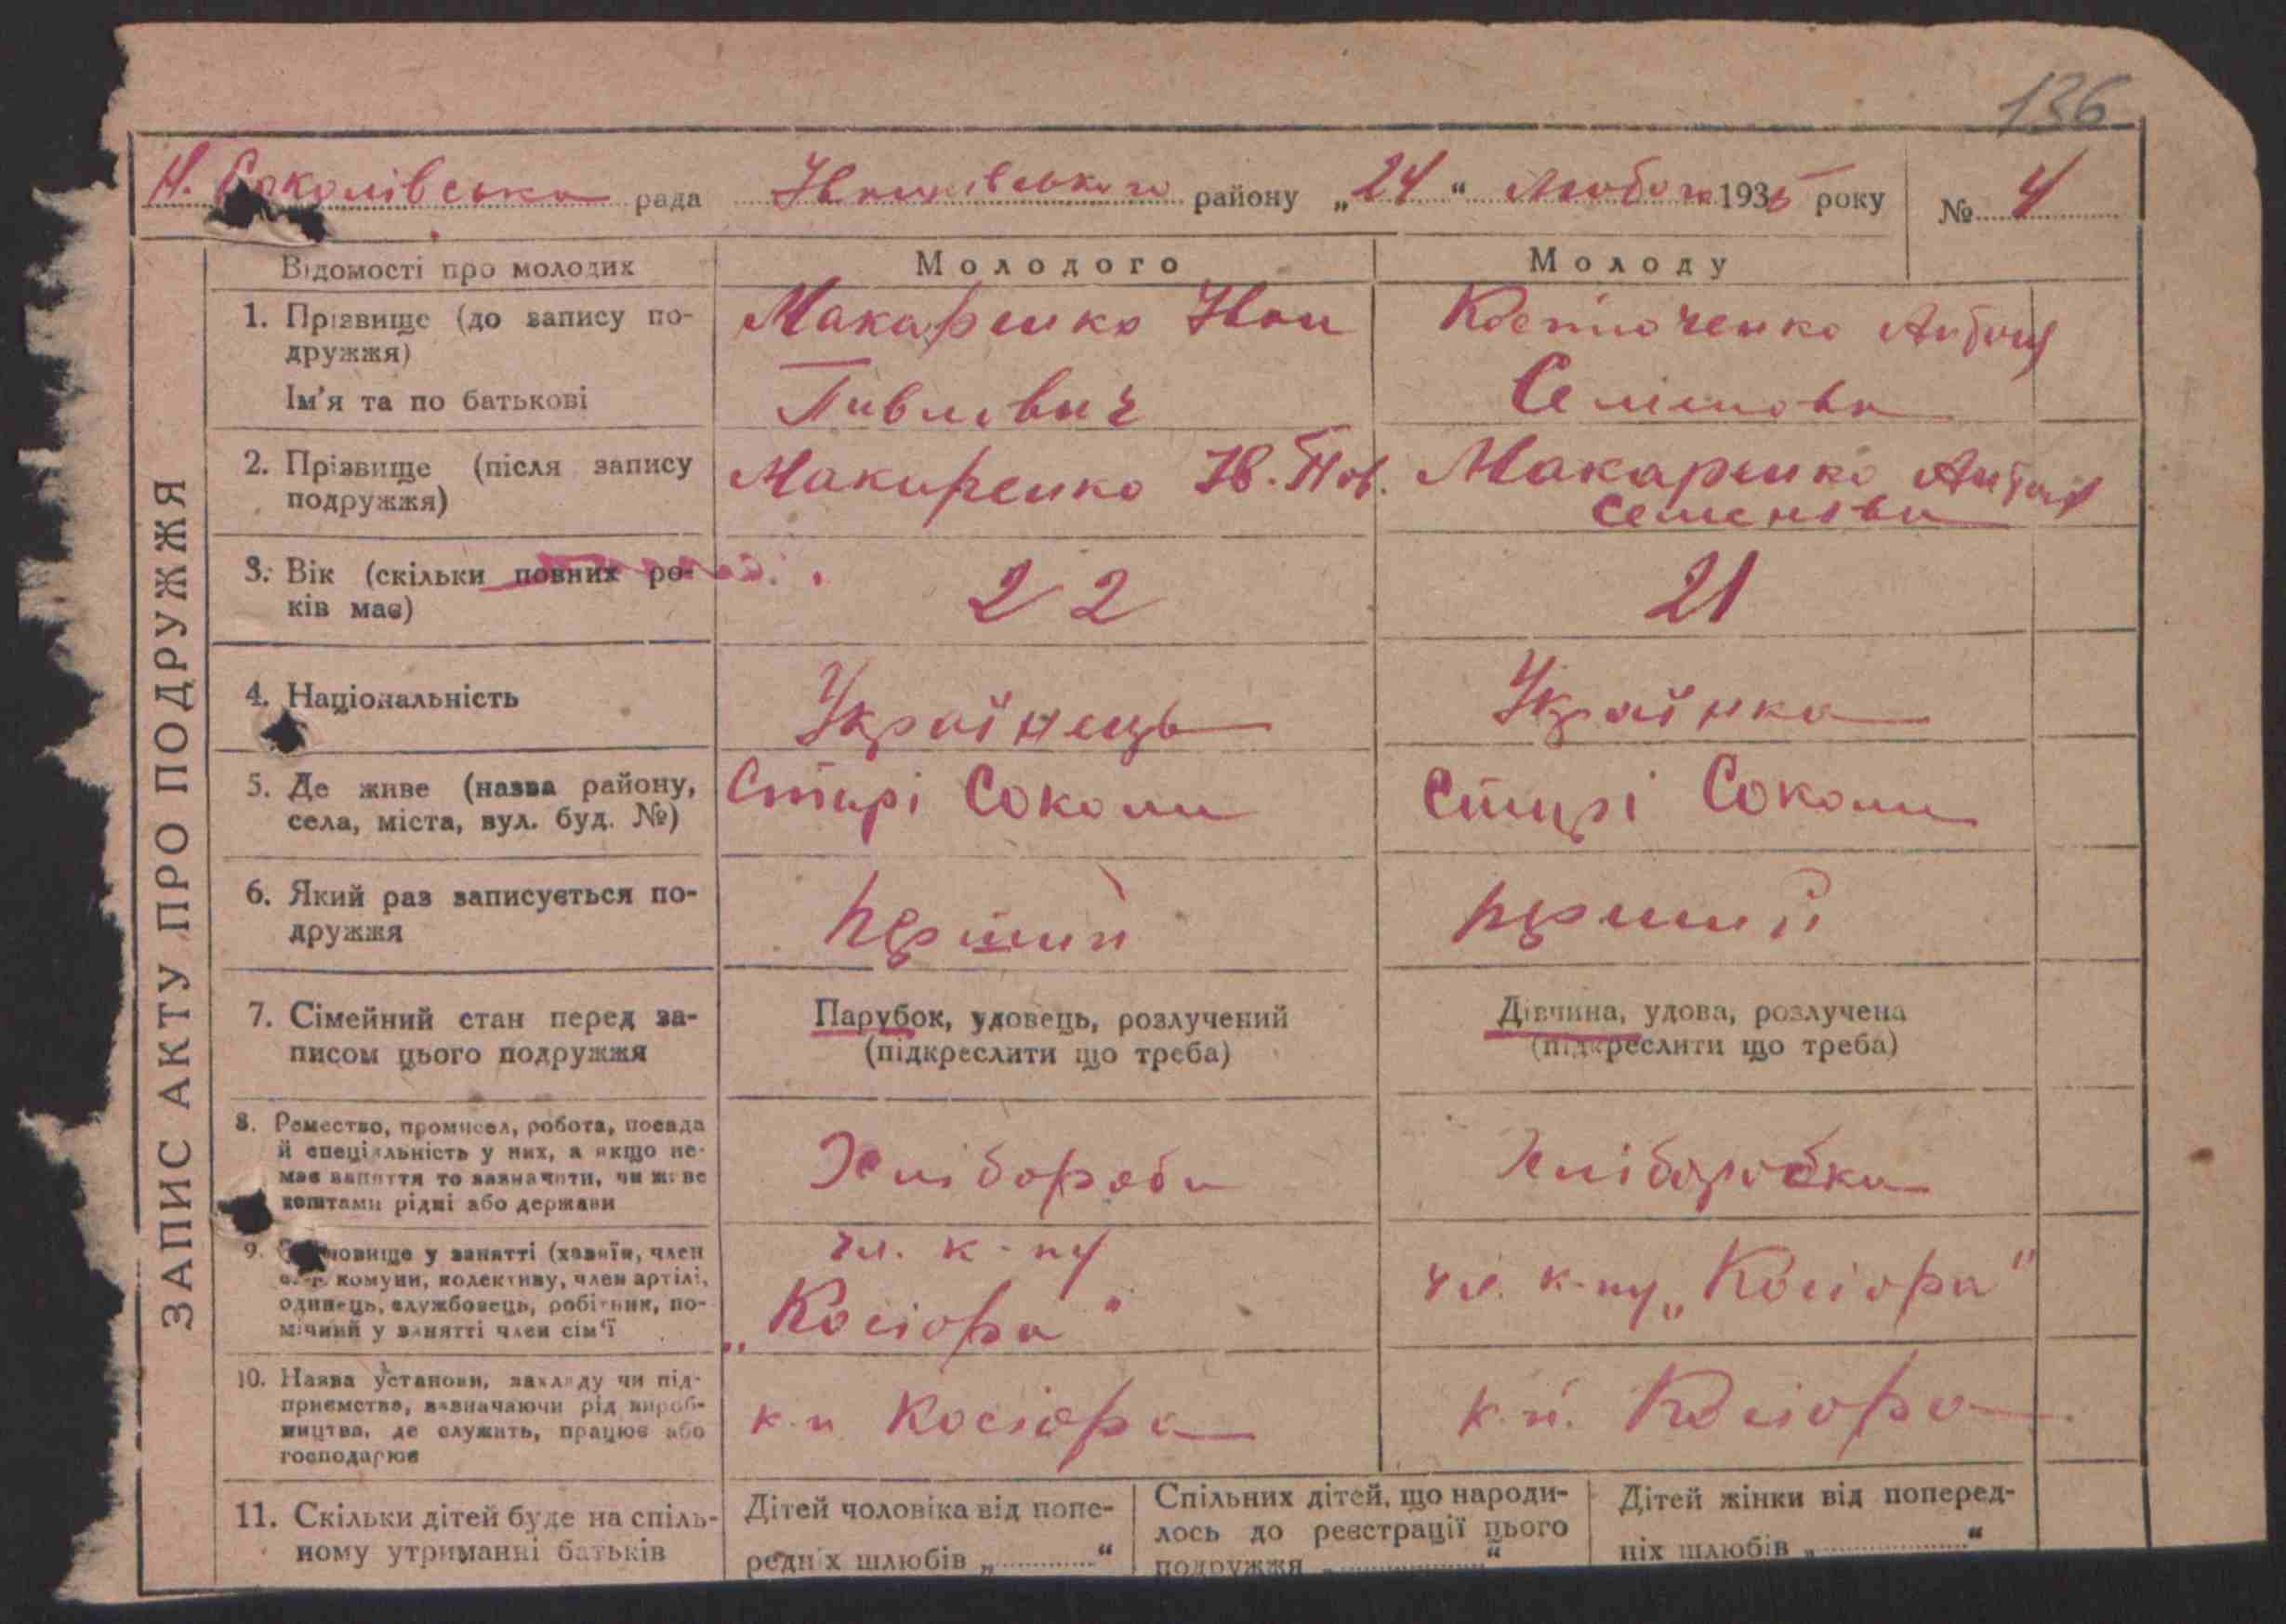 136
Н. Соколівська рада Іванківського району „24" Лютого 1935 року № 4
ЗАПИС АКТУ ПРО ПОДРУЖЖЯ
Відомості про молодих
Молодого
Молоду
1. Прізвище (до запису по-
дружжя)
Ім'я та по батькові
Макаренко Іван
Павлович
Костюченко
Семенова
2. Прізвище (після запису
подружжя)
Макаренко Ів. Пав.
Макаренко
Семенова
3. Вік (скільки повних ро-
ків має)
22
21
4. Національність
Українець
Українка
5. Де живе (назва району,
села, міста, вул. буд. №)
Старі Соколи
Старі Соколи
6. Який раз записується по-
дружжя
перший
перший
7. Сімейний стан перед за-
писом цього подружжя
Парубок, удовець, розлучений
(підкреслити що треба)
Дівчина, удова, розлучена
(підкреслити що треба)
8. Ремество, промисел, робота, посада
й спеціяльність у них, а якщо не-
має заняття то зазначити, чи живе
коштами рідні або держави
Хлібороб
Хліборобка
9. новище у занятті (хазяїн, член
комуни, колективу, член артілі,
одинець, службовець, робітник, по-
мічний у занятті член сім'ї
чл. к-пу
„Косіора"
чл. к-пу „Косіора"
10. Назва установи, закладу чи під-
приємства, зазначаючи рід вироб-
ництва, де служить, працює або
господарює
к-п Косіора
к.п. Косіора
11. Скільки дітей буде на спіль-
ному утриманні батьків
Дітей чоловіка від попе-
редніх шлюбів „ "
Спільних дітей, що народи-
лось до реєстрації цього
подружжя „ "
Дітей жінки від поперед-
ніх шлюбів „ "